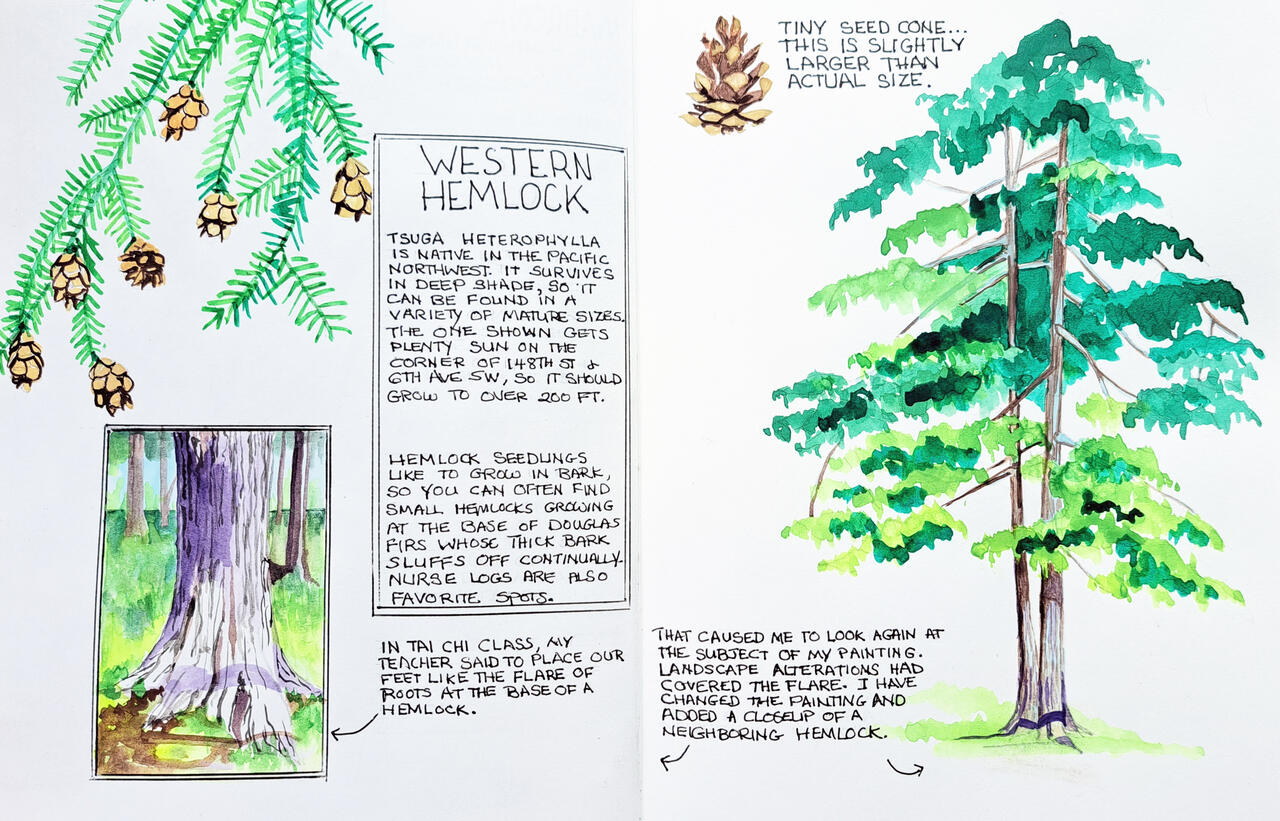 WESTERN
HEMLOCK
TSUGA HETEROPHYLLA
IS NATIVE IN THE PACIFIC
NORTHWEST. IT SURVIVES
IN DEEP SHADE, SO IT
CAN BE FOUND IN A
VARIETY OF MATURE SIZES.
THE ONE SHOWN GETS
PLENTY SUN ON THE
CORNER OF 148TH ST &
6TH AVE SW, SO IT SHOULD
GROW TO OVER 200 FT.
HEMLOCK SEEDLINGS
LIKE TO GROW IN BARK,
SO YOU CAN OFTEN FIND
SMALL HEMLOCKS GROWING
AT THE BASE OF DOUGLAS
FIRS WHOSE THICK BARK
SLUFFS OFF CONTINUALLY.
NURSE LOGS ARE ALSO
FAVORITE SPOTS.
IN TAI CHI CLASS, MY
TEACHER SAID TO PLACE OUR
FEET LIKE THE FLARE OF
ROOTS AT THE BASE OF A
HEMLOCK.
TINY SEED CONE...
THIS IS SLIGHTLY
LARGER THAN
ACTUAL SIZE.
THAT CAUSED ME TO LOOK AGAIN AT
THE SUBJECT OF MY PAINTING.
LANDSCAPE ALTERATIONS HAD
COVERED THE FLARE. I HAVE
CHANGED THE PAINTING AND
ADDED A CLOSEUP OF A
NEIGHBORING HEMLOCK.